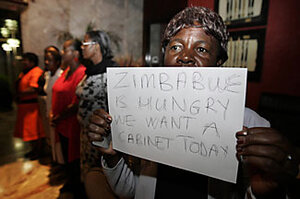 ZIMBABWE
IS HUNGRY
WE WANT A
CABINET TODAY